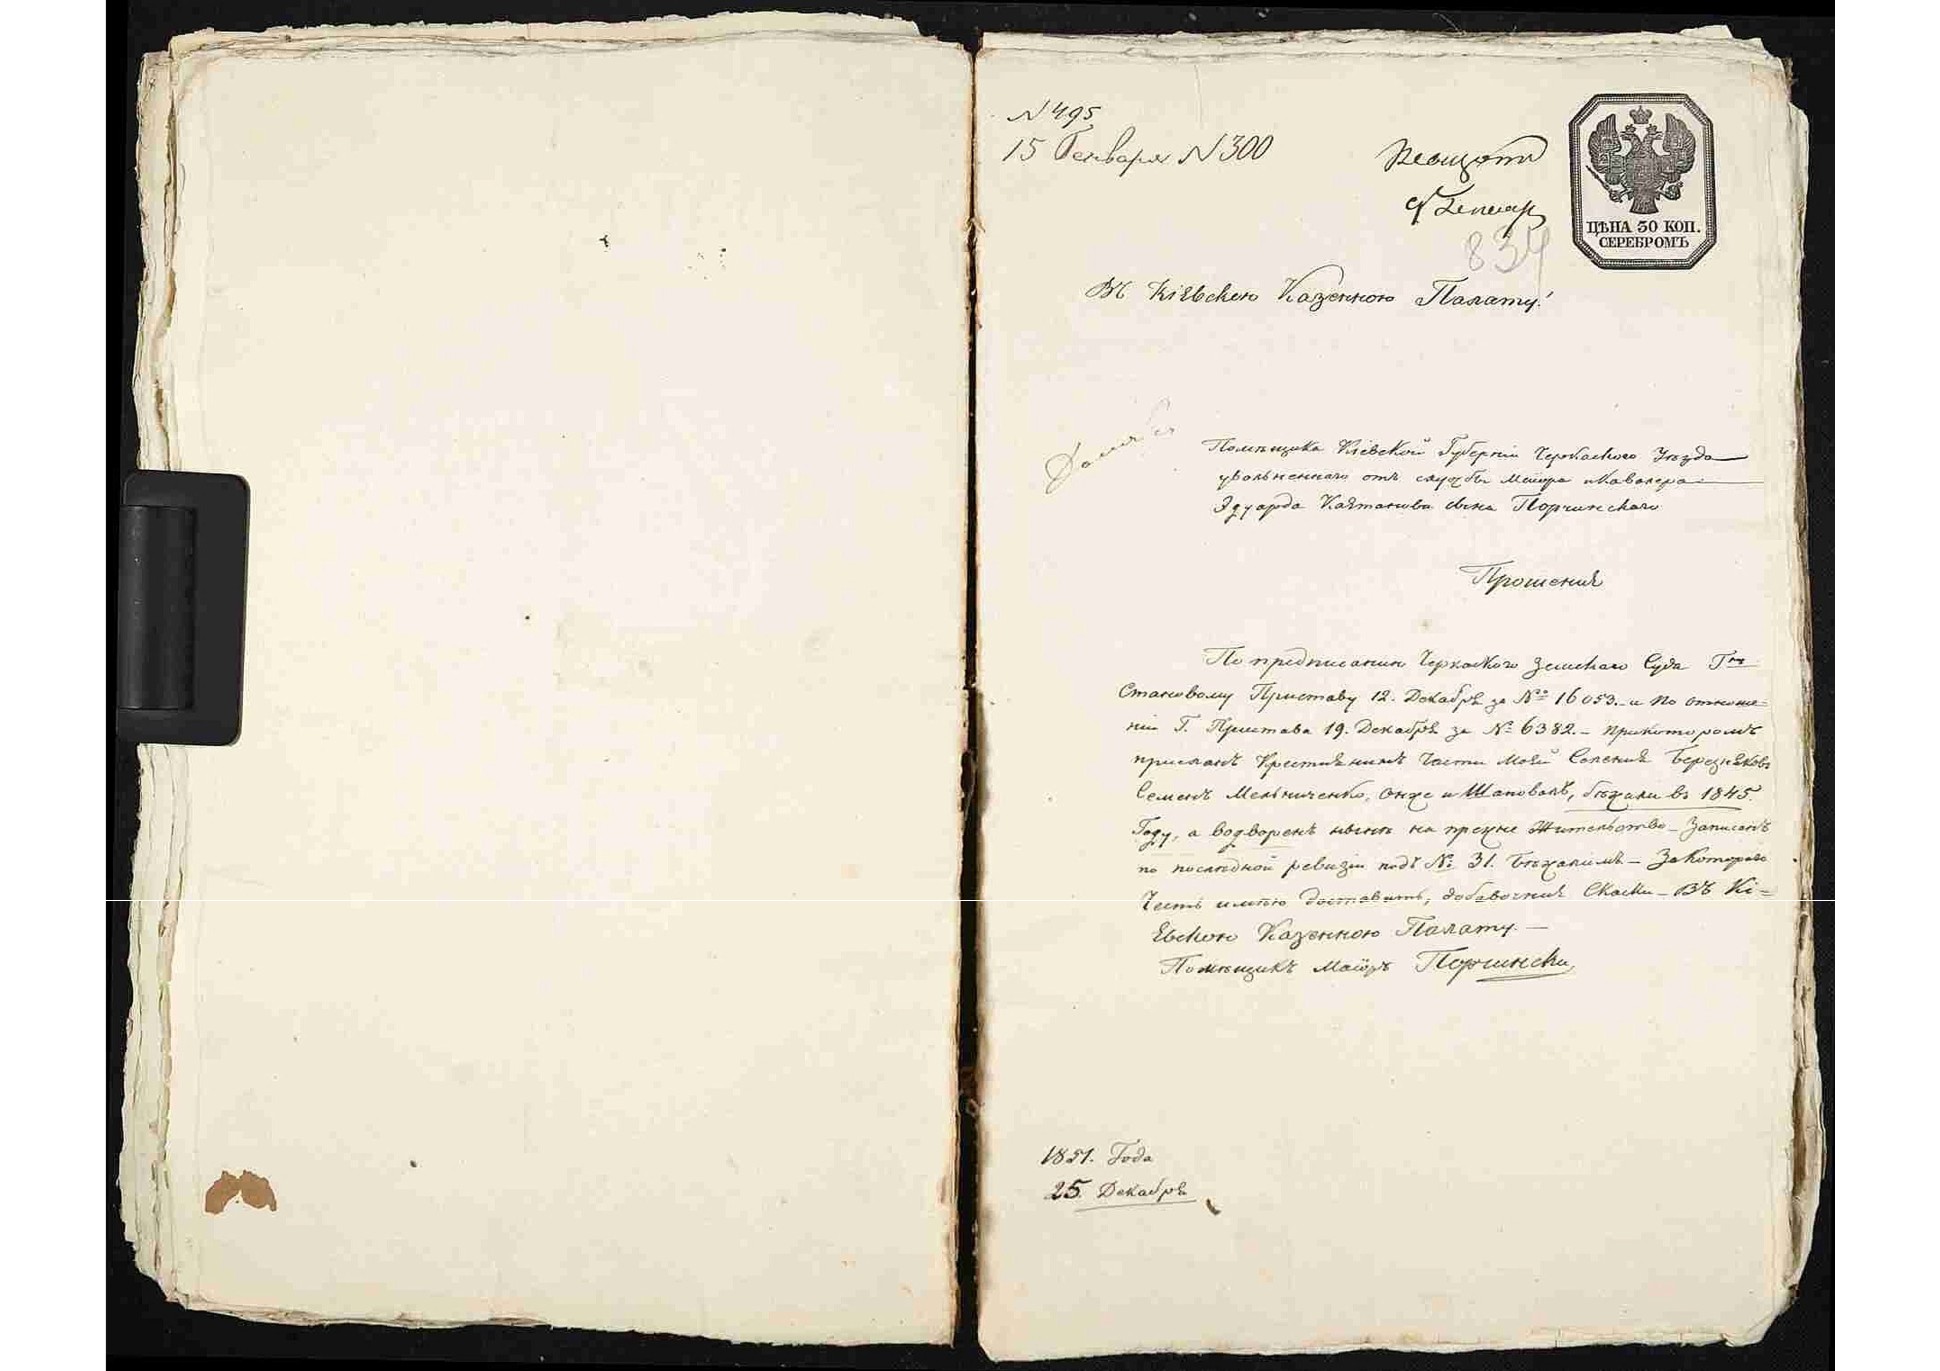 N 495
15 Генваря N 300
ЦѢНА 30 КОП.
СЕРЕБРОМЪ
834
Въ Кіевскою Казенною Палату!
Помѣщика Кіевской Губерніи Черкаского Уѣзда
увольненнаго отъ службы Маіора и Кавалера
Эдуарда Каэтанова сына Порчинскаго
Прошение
По предписанию Черкаского Земскаго Суда Гну
Становому Приставу 12. Декабря за № 16053. и по отноше=
ніи Г. Пристава 19. Декабря за № 6382. – прикоторомъ
присланъ Крестиянинъ Части моей Селения Березняковъ
Семенъ Мельниченко, онже и Шаповалъ, бѣжали въ 1845.
Году, а водворенъ нынѣ на прежне Жительство – Записанъ
по послѣдной ревизіи подъ №. 31. Бѣжалимъ – За Котораго
Честь имѣю доставить, добавочния Скаски – Въ Кі=
евскою Казенною Палату. –
Помѣщикъ Маіоръ Порчински
1851. Года
25. Декабря